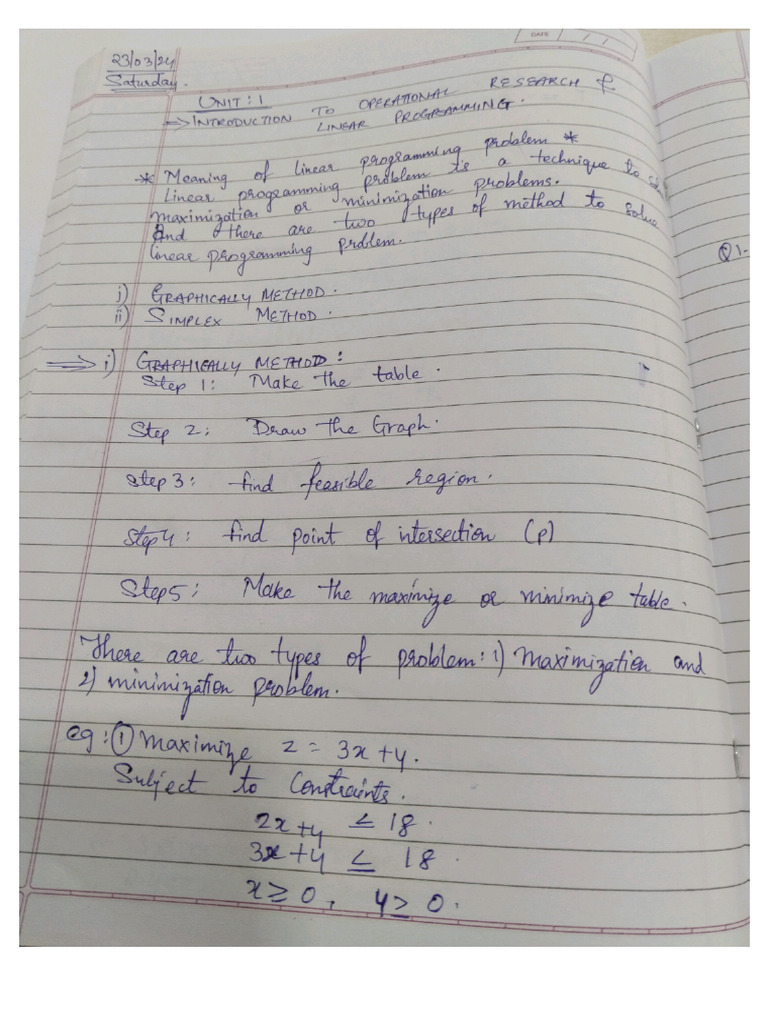 DATE / /
23/03/24
Saturday.
UNIT: 1
=> INTRODUCTION TO OPERATIONAL RESEARCH &
LINEAR PROGRAMMING.
* Meaning of linear programming problem *
Linear programming problem is a technique to
maximization or minimization problems.
And there are two types of method to solve
linear programming problem.
Q1.
i) GRAPHICALLY METHOD.
ii) SIMPLEX METHOD.
=> i) GRAPHICALLY METHOD:
Step 1: Make the table.
Step 2: Draw the Graph.
Step 3: find feasible region.
Step 4: find point of intersection (P)
Step 5: Make the maximize or minimize table.
There are two types of problem: 1) Maximization and
2) minimization problem.
eg: ① Maximize z = 3x+y.
Subject to Constraints.
2x+y ≤ 18.
3x+y ≤ 18.
x≥0, y≥0.